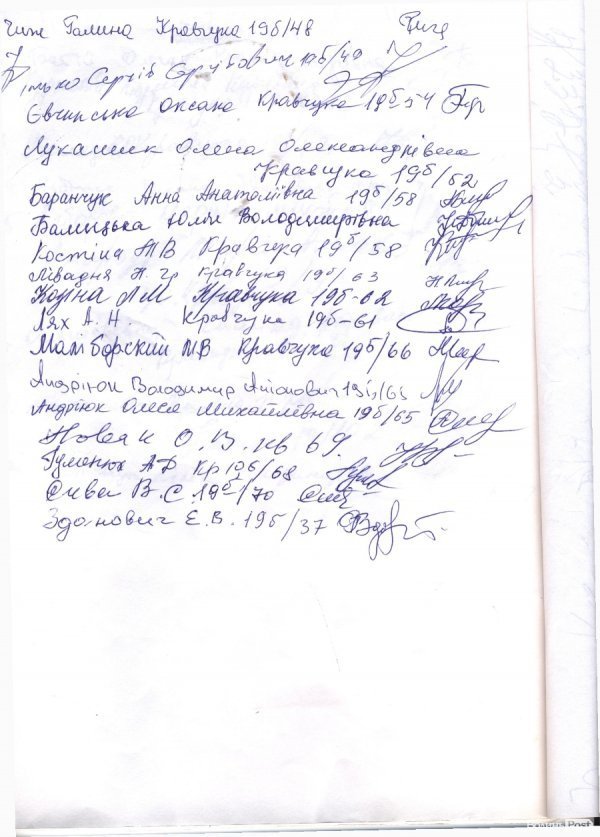 Чиж Галина Кравчука 19б/48
Сергій Сергійович 19б/49
Оксана Кравчука 19б 54
Лукашик Олена Олександрівна
Кравчука 19б/52
Баранчук Анна Анатоліївна 19б/58
Юлія Володимирівна
Костіна Т В Кравчука 19б/58
Лівадня Н Кравчука 19б/63
Л М Кравчука 19б-62
Лях А. Н. Кравчука 19б-61
Кравчука 19б/66
Андріюк Володимир Антонович 19б/65
Андріюк Олеся Михайлівна 19б/65
Новак О. В. кв 69.
Гуменюк А Кр 19б/68
Сива В. С. 19б/70
Зданович Е. В. 19б/37